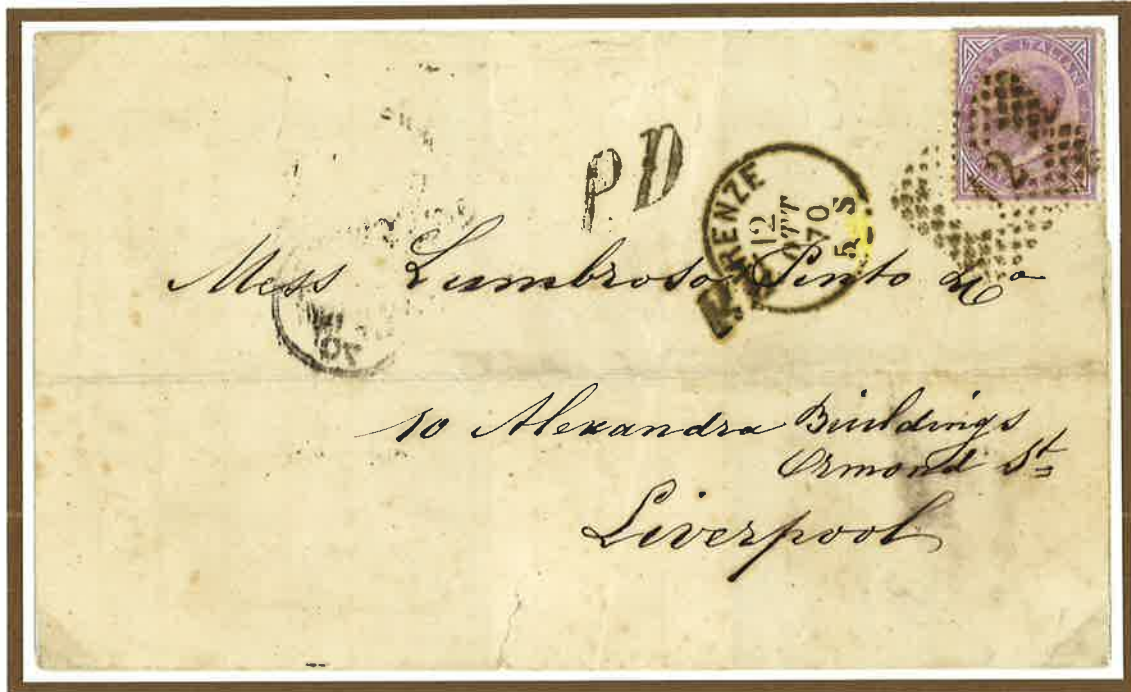 POSTE ITALIANE
P.D
FIRENZE
12
OTT
70
5 S
2
70
Mess Lumbroso Pinto & Co
10 Alexandra Buildings
Ormond St
Liverpool